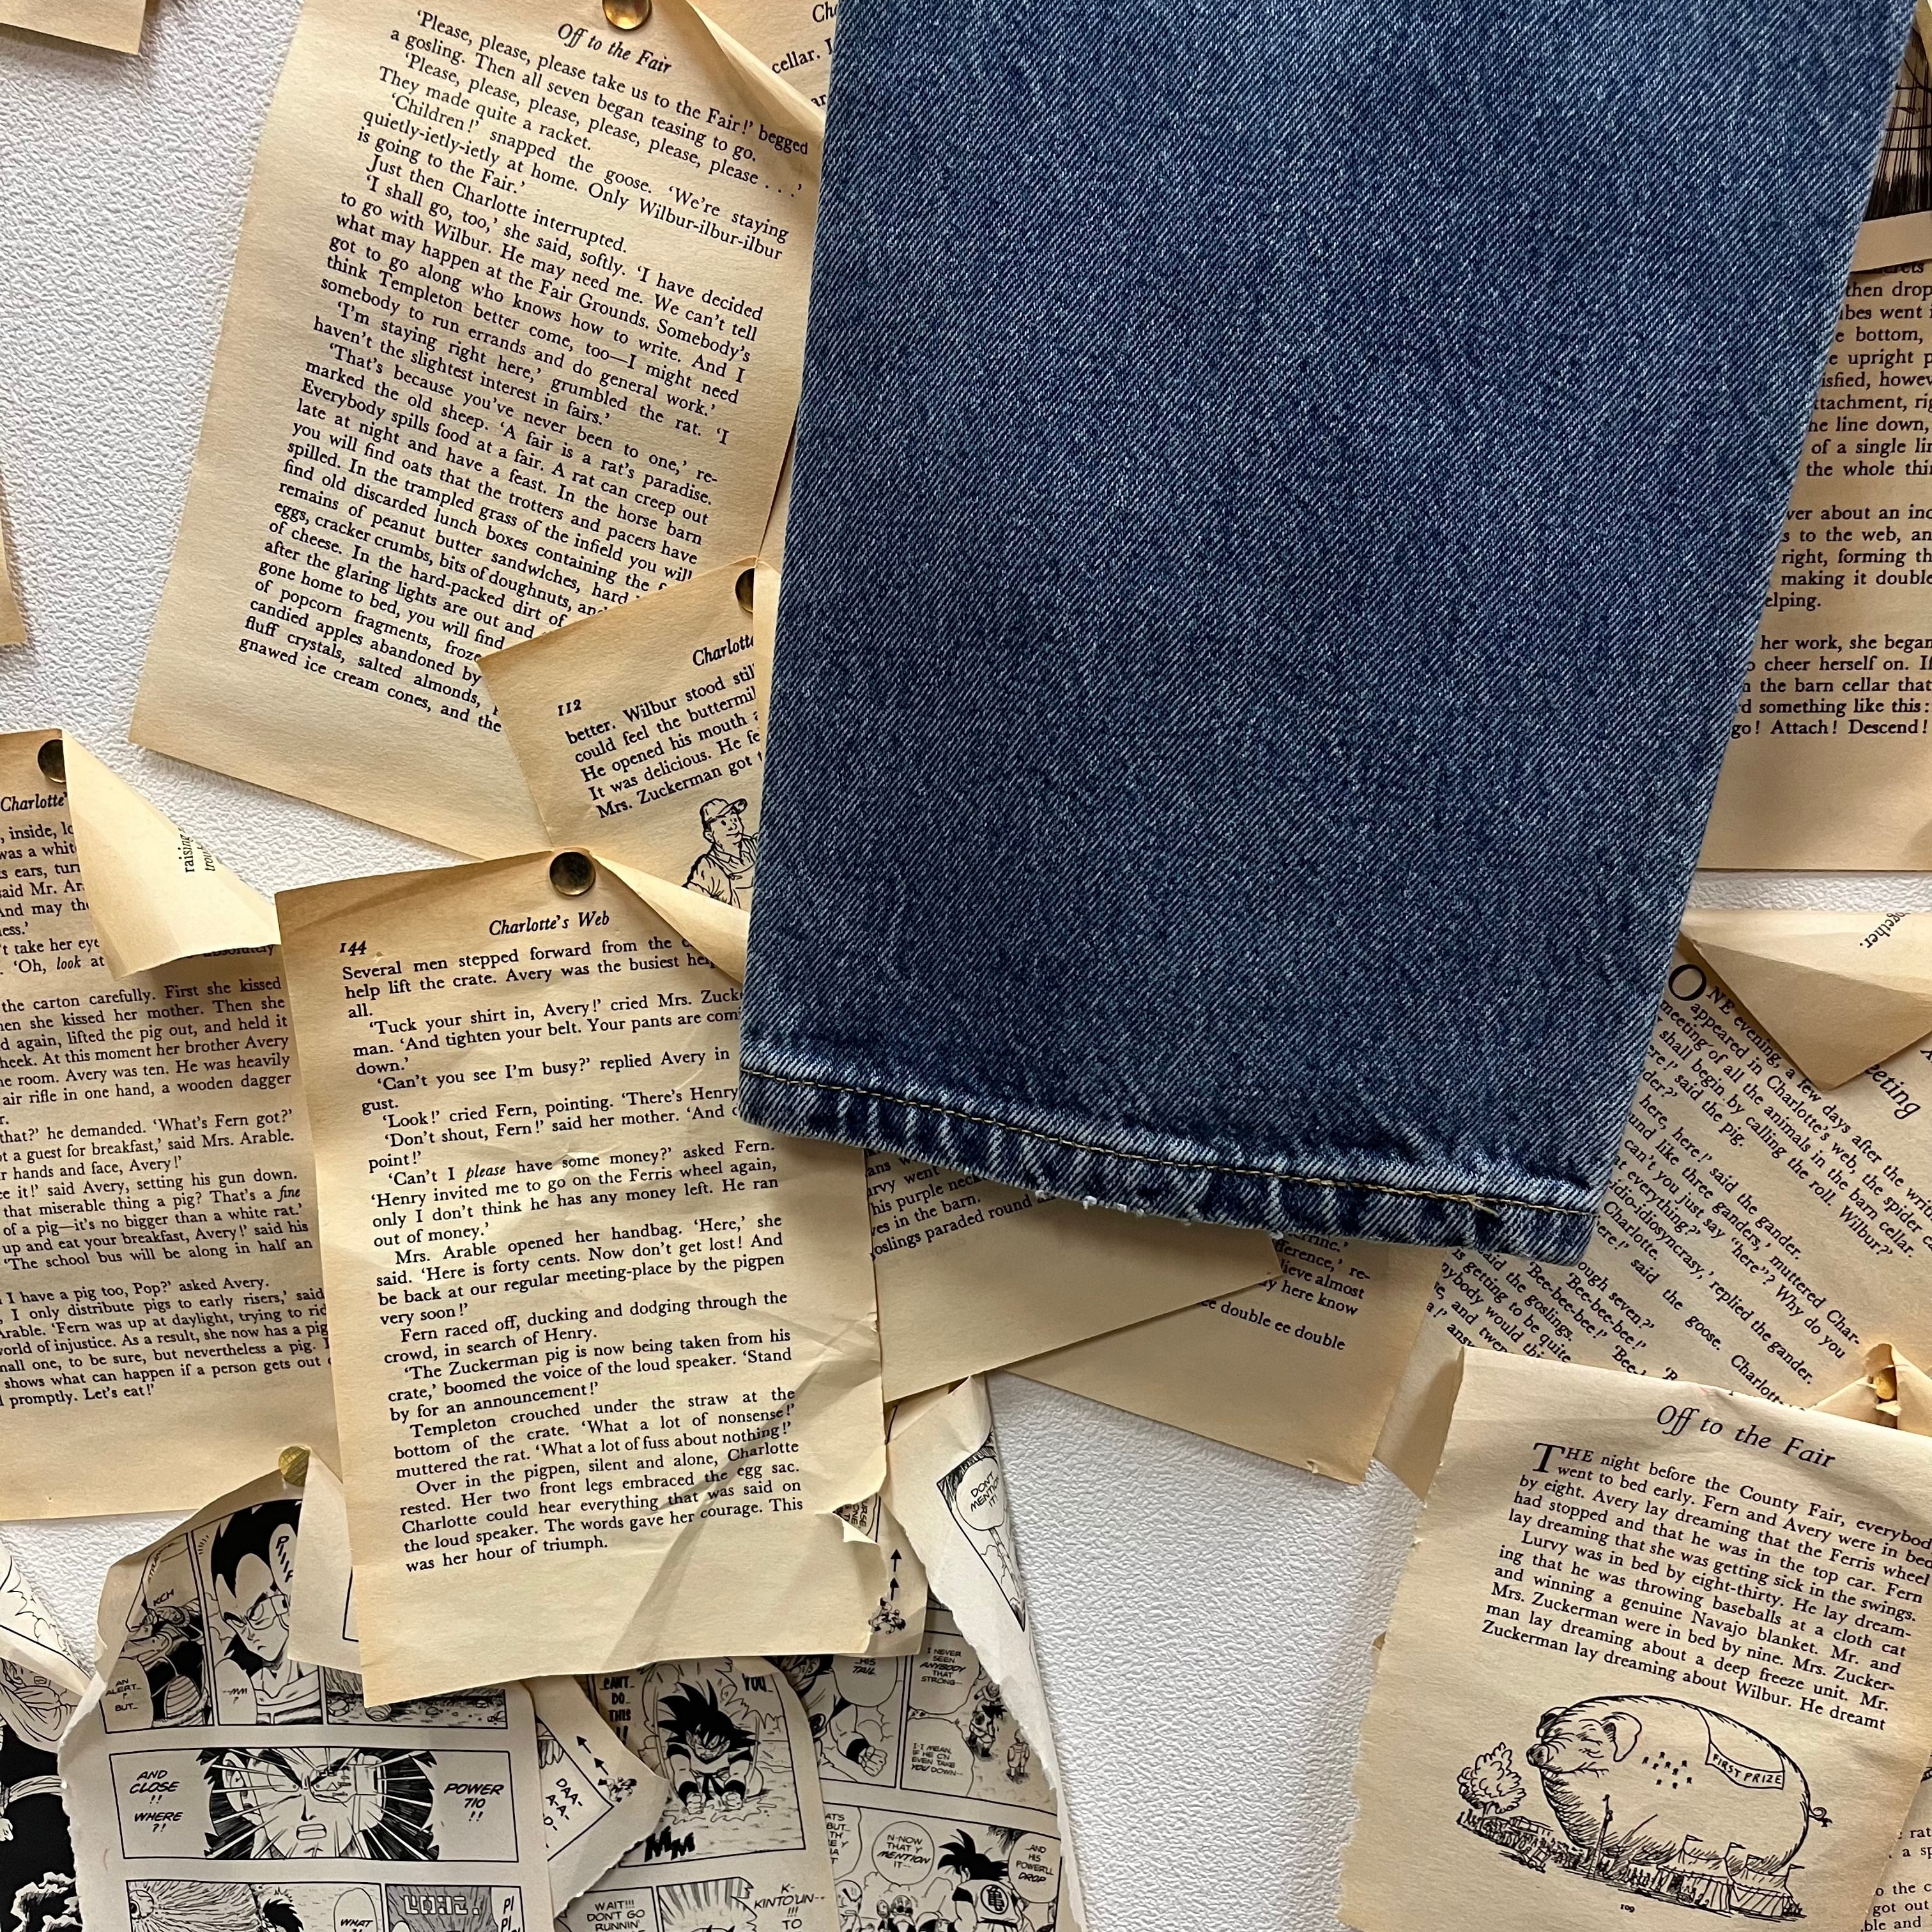 Off to the Fair
'Please, please, please take us to the Fair!' begged
a gosling. Then all seven began teasing to go.
'Please, please, please, please, please, please . . .'
They made quite a racket.
'Children!' snapped the goose. 'We're staying
quietly-ietly-ietly at home. Only Wilbur-ilbur-ilbur
is going to the Fair.'
Just then Charlotte interrupted.
'I shall go, too,' she said, softly. 'I have decided
to go with Wilbur. He may need me. We can't tell
what may happen at the Fair Grounds. Somebody's
got to go along who knows how to write. And I
think Templeton better come, too—I might need
somebody to run errands and do general work.'
'I'm staying right here,' grumbled the rat. 'I
haven't the slightest interest in fairs.'
'That's because you've never been to one,' re-
marked the old sheep. 'A fair is a rat's paradise.
Everybody spills food at a fair. A rat can creep out
late at night and have a feast. In the horse barn
you will find oats that the trotters and pacers have
spilled. In the trampled grass of the infield you will
find old discarded lunch boxes containing the
remains of peanut butter sandwiches, hard
eggs, cracker crumbs, bits of doughnuts, and
of cheese. In the hard-packed dirt of
after the glaring lights are out and
gone home to bed, you will find
of popcorn fragments, froze
candied apples abandoned by
fluff crystals, salted almonds,
gnawed ice cream cones, and the
cellar.
112
Charlotte
better. Wilbur stood still
could feel the buttermil
He opened his mouth a
It was delicious. He fe
Mrs. Zuckerman got
Charlotte'
, inside, lo
was a whit
s ears, turn
said Mr. Ar
And may th
ness.'
't take her eye
. 'Oh, look at absolutely
the carton carefully. First she kissed
hen she kissed her mother. Then she
d again, lifted the pig out, and held it
heek. At this moment her brother Avery
he room. Avery was ten. He was heavily
air rifle in one hand, a wooden dagger
r.
that?' he demanded. 'What's Fern got?'
ot a guest for breakfast,' said Mrs. Arable.
r hands and face, Avery!'
e it!' said Avery, setting his gun down.
that miserable thing a pig? That's a fine
of a pig—it's no bigger than a white rat.'
up and eat your breakfast, Avery!' said his
'The school bus will be along in half an
I have a pig too, Pop?' asked Avery.
, I only distribute pigs to early risers,' said
Arable. 'Fern was up at daylight, trying to rid
world of injustice. As a result, she now has a pig.
mall one, to be sure, but nevertheless a pig.
shows what can happen if a person gets out
d promptly. Let's eat!'
144
Charlotte's Web
Several men stepped forward from the
help lift the crate. Avery was the busiest help
all.
'Tuck your shirt in, Avery!' cried Mrs. Zuck
man. 'And tighten your belt. Your pants are com
down.'
'Can't you see I'm busy?' replied Avery in
gust.
'Look!' cried Fern, pointing. 'There's Henry
'Don't shout, Fern!' said her mother. 'And
point!'
'Can't I please have some money?' asked Fern.
'Henry invited me to go on the Ferris wheel again,
only I don't think he has any money left. He ran
out of money.'
Mrs. Arable opened her handbag. 'Here,' she
said. 'Here is forty cents. Now don't get lost! And
be back at our regular meeting-place by the pigpen
very soon!'
Fern raced off, ducking and dodging through the
crowd, in search of Henry.
'The Zuckerman pig is now being taken from his
crate,' boomed the voice of the loud speaker. 'Stand
by for an announcement!'
Templeton crouched under the straw at the
bottom of the crate. 'What a lot of nonsense!'
muttered the rat. 'What a lot of fuss about nothing!'
Over in the pigpen, silent and alone, Charlotte
rested. Her two front legs embraced the egg sac.
Charlotte could hear everything that was said on
the loud speaker. The words gave her courage. This
was her hour of triumph.
urvy went
his purple neck
es in the barn.
oslings paraded round
fference,' re-
lieve almost
y here know
ee double ee double
then drop
ibes went
e bottom,
e upright p
isfied, howev
ttachment, rig
he line down,
of a single lin
the whole thi
ver about an inc
s to the web, an
right, forming th
making it double
elping.
her work, she began
o cheer herself on. If
n the barn cellar that
d something like this:
go! Attach! Descend!
together.
eeting
ONE evening, a few days after the writ
appeared in Charlotte's web, the spider
meeting of all the animals in the barn cellar.
shall begin by calling the roll. Wilbur?'
ere!' said the pig.
der?'
here, here!' said the gander.
und like three ganders,' muttered Char-
can't you just say "here"? Why do you
t everything?'
idio-idiosyncrasy,' replied the gander.
Charlotte.
ere!' said the goose. Charlotte
ough seven?'
'Bee-bee-bee!'
'Bee-bee-bee!' 'Bee-
said the goslings.
is getting to be quite
nybody would
Off to the Fair
THE night before the County Fair, everybody
went to bed early. Fern and Avery were in bed
by eight. Avery lay dreaming that the Ferris wheel
had stopped and that he was in the top car. Fern
lay dreaming that she was getting sick in the swings.
Lurvy was in bed by eight-thirty. He lay dream-
ing that he was throwing baseballs at a cloth cat
and winning a genuine Navajo blanket. Mr. and
Mrs. Zuckerman were in bed by nine. Mrs. Zucker-
man lay dreaming about a deep freeze unit. Mr.
Zuckerman lay dreaming about Wilbur. He dreamt
FIRST PRIZE
109
DON'T
MENTION
IT!
KCH
AN
ALERT..?
BUT...
--MM
?
AND
CLOSE
!!
WHERE
?!
POWER
710
!!
WHAT
CAN'T
DO..
THIS
!!
YOU..
HIS
TAIL
I NEVER
SEEN
ANYBODY
THAT
STRONG--
I-I MEAN,
IF HE C'N
EVEN TAKE
YOU DOWN--
DAA-
A-A-
N-NOW
THAT Y'
MENTION
IT--
..AND
HIS
POWER'LL
DROP
WAIT!!!
DON'T GO
RUNNIN'
K-
KINTOUN--
!!!
TO